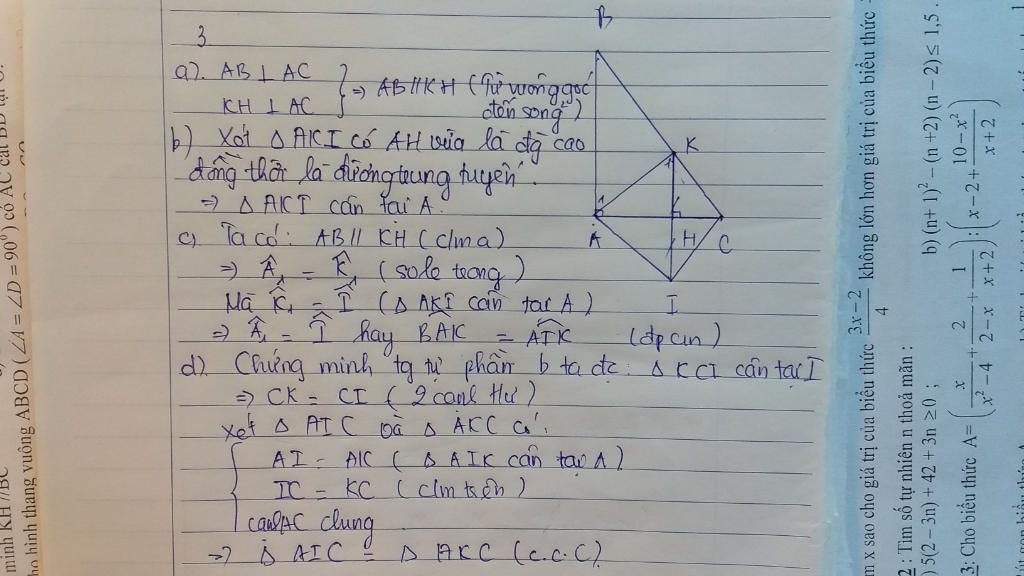 3
a). AB ⊥ AC
KH ⊥ AC } => AB // KH (Từ vuông góc đến song²)
b) Xét △ AKI có AH vừa là đg cao
đồng thời là đường trung tuyến.
=> △ AKI cân tại A.
c) Ta có: AB // KH (c/m a)
=> Â₁ = K̂₁ (so le trong)
Mà K̂₁ = Î (△ AKI cân tại A)
=> Â₁ = Î hay BAK = AIK (đpcm)
d). Chứng minh tg tự phần b ta đc: △ KCI cân tại I
=> CK = CI (2 cạnh t/ư)
xét △ AIC và △ AKC có:
AI = AK (△ AIK cân tại A)
IC = KC (c/m trên)
cạnh AC chung
=> △ AIC = △ AKC (c.c.c)
B
K
A
H
C
I
minh KH//BC
ho hình thang vuông ABCD (∠A = ∠D = 90°) có AC cắt BD tại
m x sao cho giá trị của biểu thức (3x − 2)/4 không lớn hơn giá trị của biểu thức
2: Tìm số tự nhiên n thoả mãn:
) 5(2 − 3n) + 42 + 3n ≥ 0 ; b) (n+ 1)² − (n +2) (n − 2) ≤ 1,5 .
3: Cho biểu thức A= (x/(x² − 4) + 2/(2 − x) + 1/(x + 2)) : (x − 2 + (10 − x²)/(x + 2))